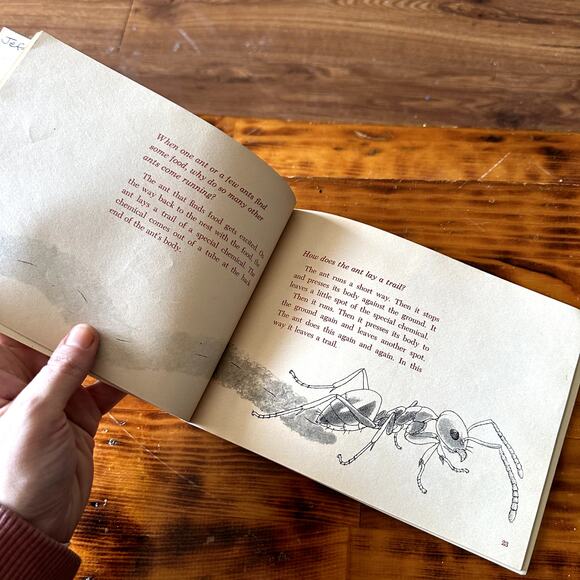 When one ant or a few ants find
some food, why do so many other
ants come running?
The ant that finds food gets excited. On
the way back to the nest with the food, the
ant lays a trail of a special chemical. The
chemical comes out of a tube at the back
end of the ant's body.
How does the ant lay a trail?
The ant runs a short way. Then it stops
and presses its body against the ground. It
leaves a little spot of the special chemical.
Then it runs. Then it presses its body to
the ground again and leaves another spot.
The ant does this again and again. In this
way it leaves a trail.
23